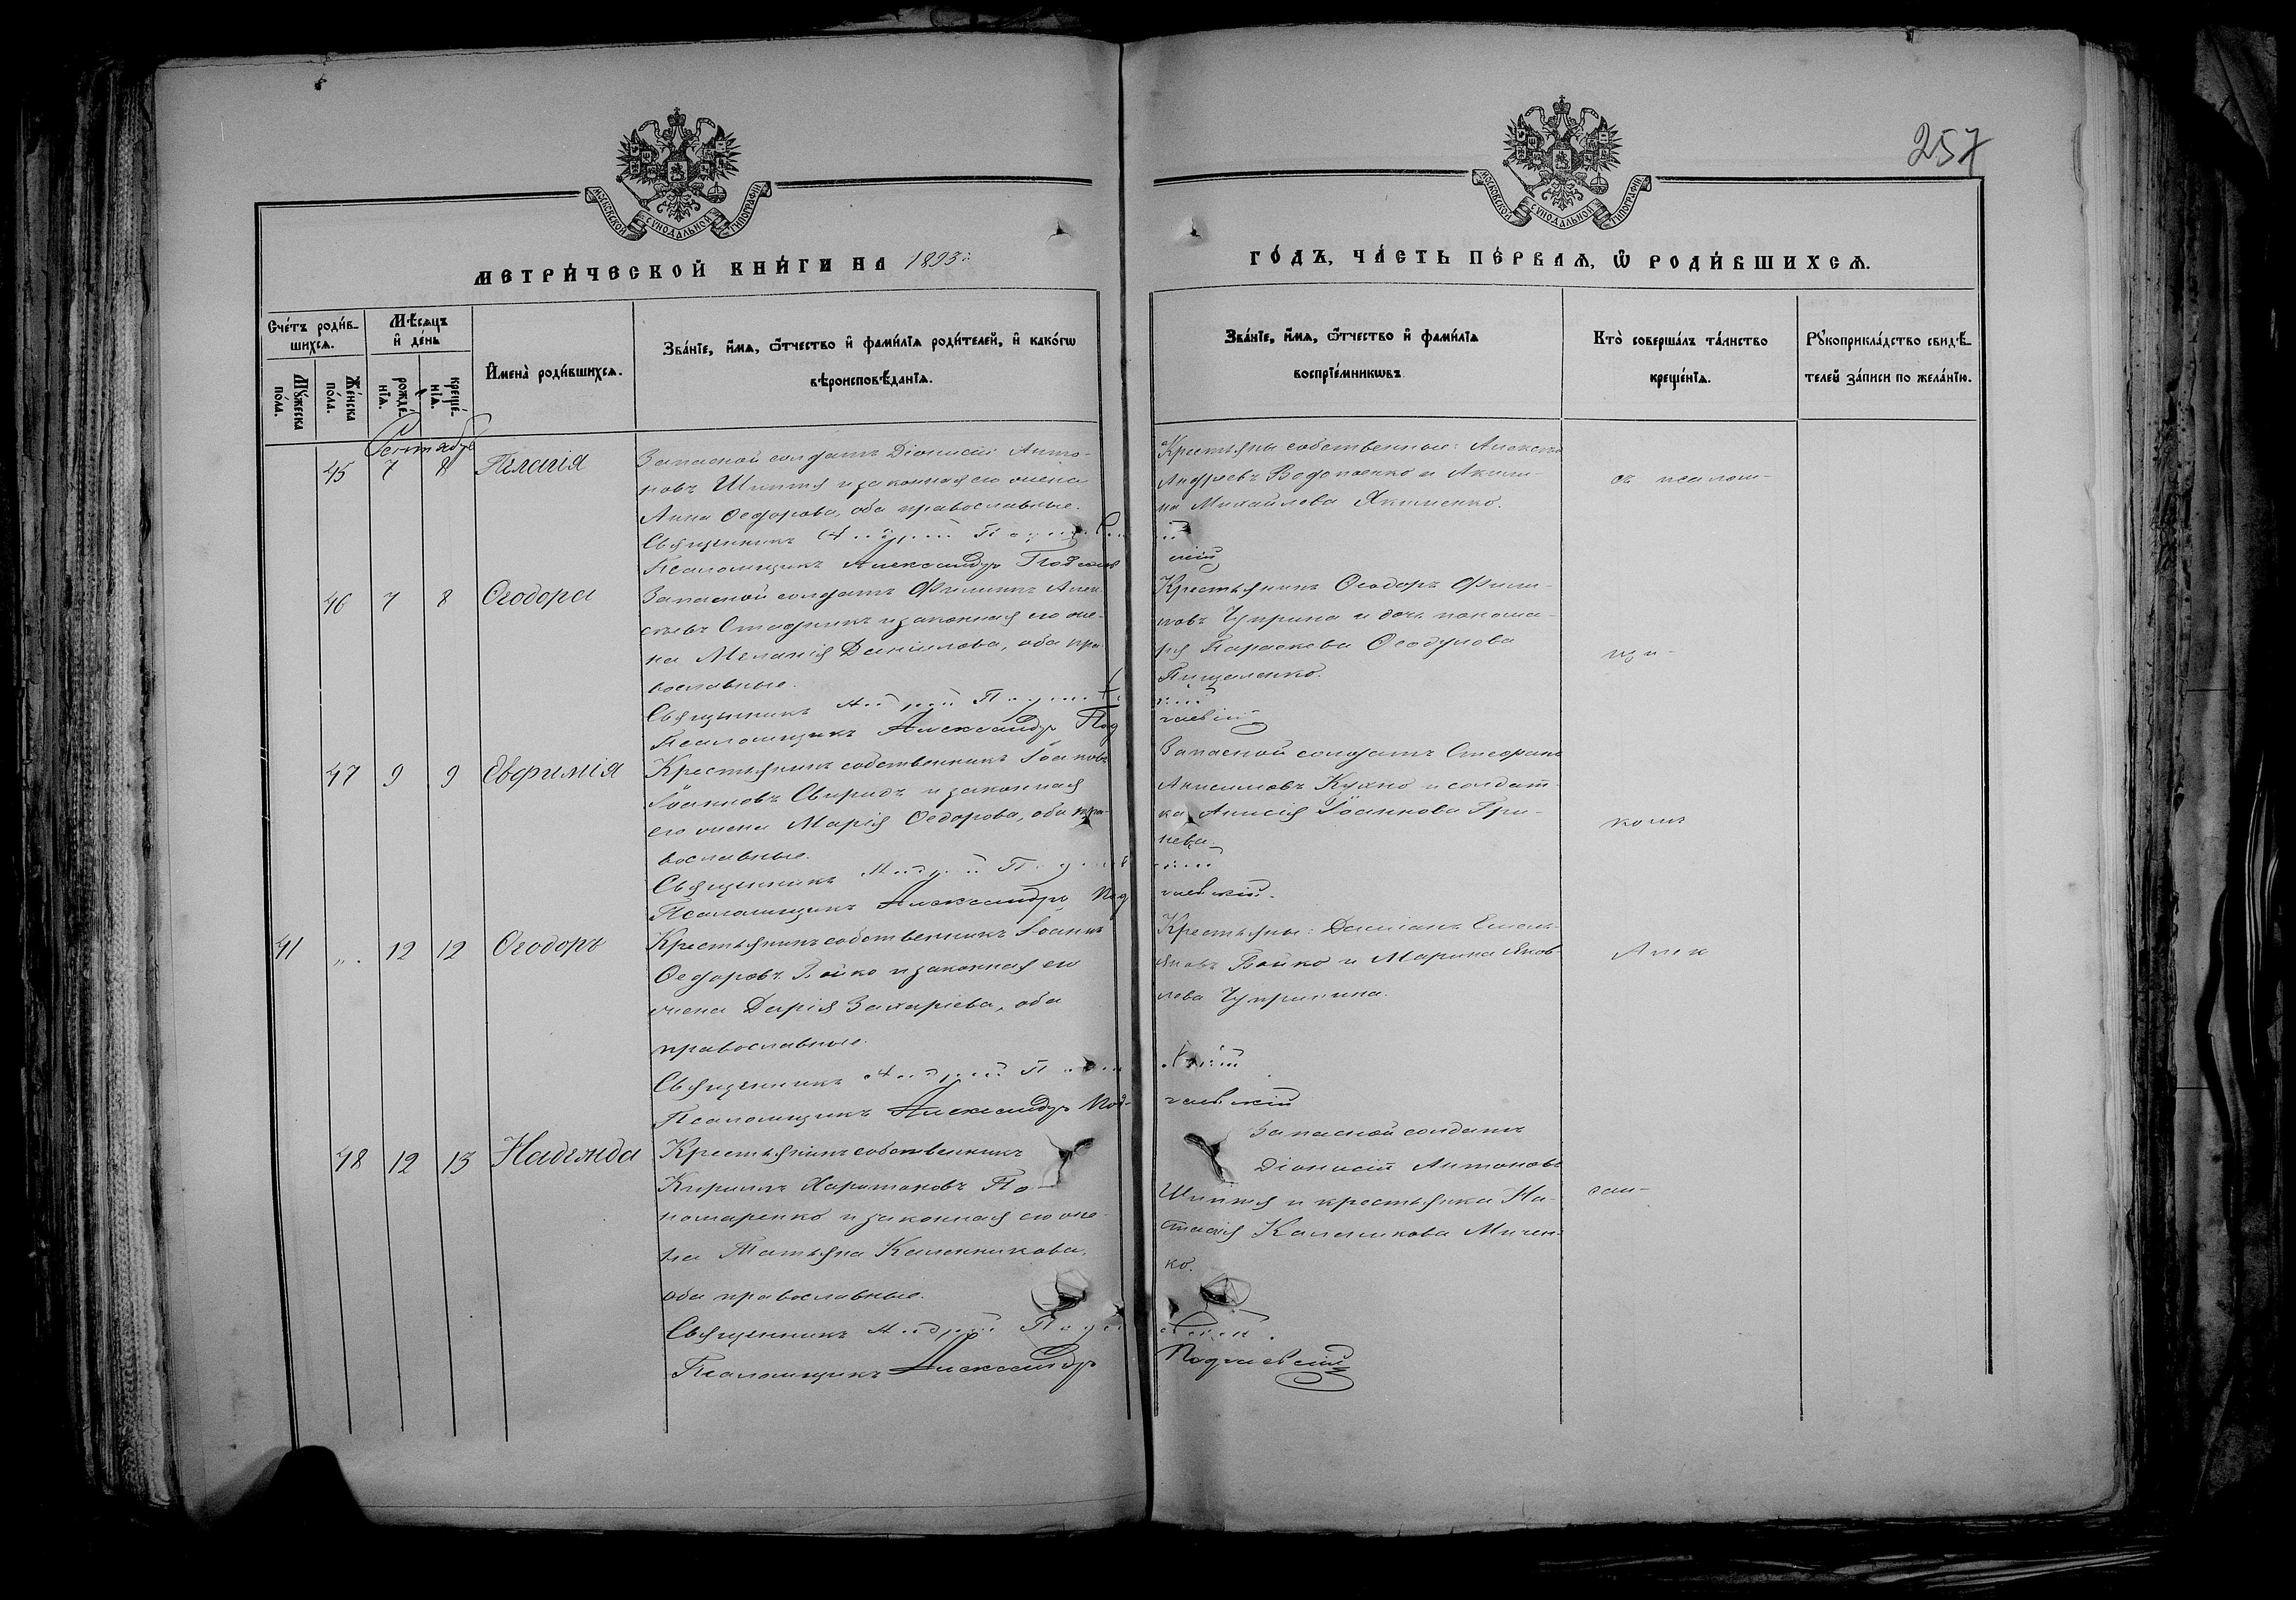 257
МОСКОВСКОЙ СУНОДАЛЬНОЙ ТИПОГРАФІИ
МОСКОВСКОЙ СУНОДАЛЬНОЙ ТИПОГРАФІИ
МЕТРИ́ЧЕСКОЙ КНИ́ГИ НА 1893 г.
ГО́ДЪ, ЧА́СТЬ ПЕ́РВАѦ, Ѡ РОДИ́ВШИХСѦ.
Сче́тъ роди́в-
шихсѧ.
Мѣ́сѧцъ
и҆ де́нь
Мꙋ́жеска
по́ла.
Же́нска
по́ла.
рожде́-
нїѧ.
креще́-
нїѧ.
И҆мена̀ роди́вшихсѧ.
Зва́нїе, и҆́мѧ, ѻ҆́тчество и҆ фами́лїѧ роди́телей, и҆ како́гѡ
вѣроисповѣ́данїѧ.
Зва́нїе, и҆́мѧ, ѻ҆́тчество и҆ фами́лїѧ
воспрїе́мникѡвъ.
Кто̀ соверша́лъ та́инство
креще́нїѧ.
Рꙋкоприкла́дство свидѣ́-
телей за́писи по жела́нїю.
Сентябрь
45 7 8 Пелагія
Запасной солдатъ Діонисій Анто-
новъ Шиптя и законная его жена
Анна Ѳеодорова, оба православные.
Священникъ Андрей
Псаломщикъ Александръ Подгаев
скій
Крестьяны собственные: Алексѣй
Андреевъ Водопоенко и Акили-
на Михайлова Якименко.
съ псалом-
46 7 8 Ѳеодора
Запасной солдатъ Филиппъ Алек-
сѣевъ Стадникъ и законная его же-
на Меланія Даніилова, оба пра-
вославные.
Священникъ Андрей
Псаломщикъ Александръ Под
гаевскій
Крестьянинъ Ѳеодоръ Филип-
повъ Чуприна и дочь понома-
ря Параскева Ѳеодулова
Пищаленко.
щи-
47 9 9 Евфимія
Крестьянинъ собственникъ Іоаковъ
Іоанновъ Свиридъ и законная
его жена Марія Ѳеодорова, оба пра-
вославные.
Священникъ Андрей
Псаломщикъ Александръ Под
гаевскій.
Запасной солдатъ Стефанъ
Анисимовъ Кухно и солдат-
ка Анисія Іоаннова Гри-
нева.
комъ
41 „ 12 12 Ѳеодоръ
Крестьянинъ собственникъ Іоаннъ
Ѳеодоровъ Бойко и законная его
жена Дарія Захаріева, оба
православные.
Священникъ Андрей
Псаломщикъ Александръ Под-
гаевскій
Крестьяны: Даміанъ Емель-
яновъ Бойко и Марина Яков-
лева Чуприкина.
Алек
48 12 13 Надежда
Крестьянинъ собственникъ
Кириллъ Харитоновъ По-
номаренко и законная его же-
на Татьяна Каленникова,
оба православные.
Священникъ Андрей
Псаломщикъ Александръ
Подгаевскій
Запасной солдатъ
Діонисій Антоновъ
Шиптя и крестьянка На-
стасія Каленикова Мичен-
ко.
сан-